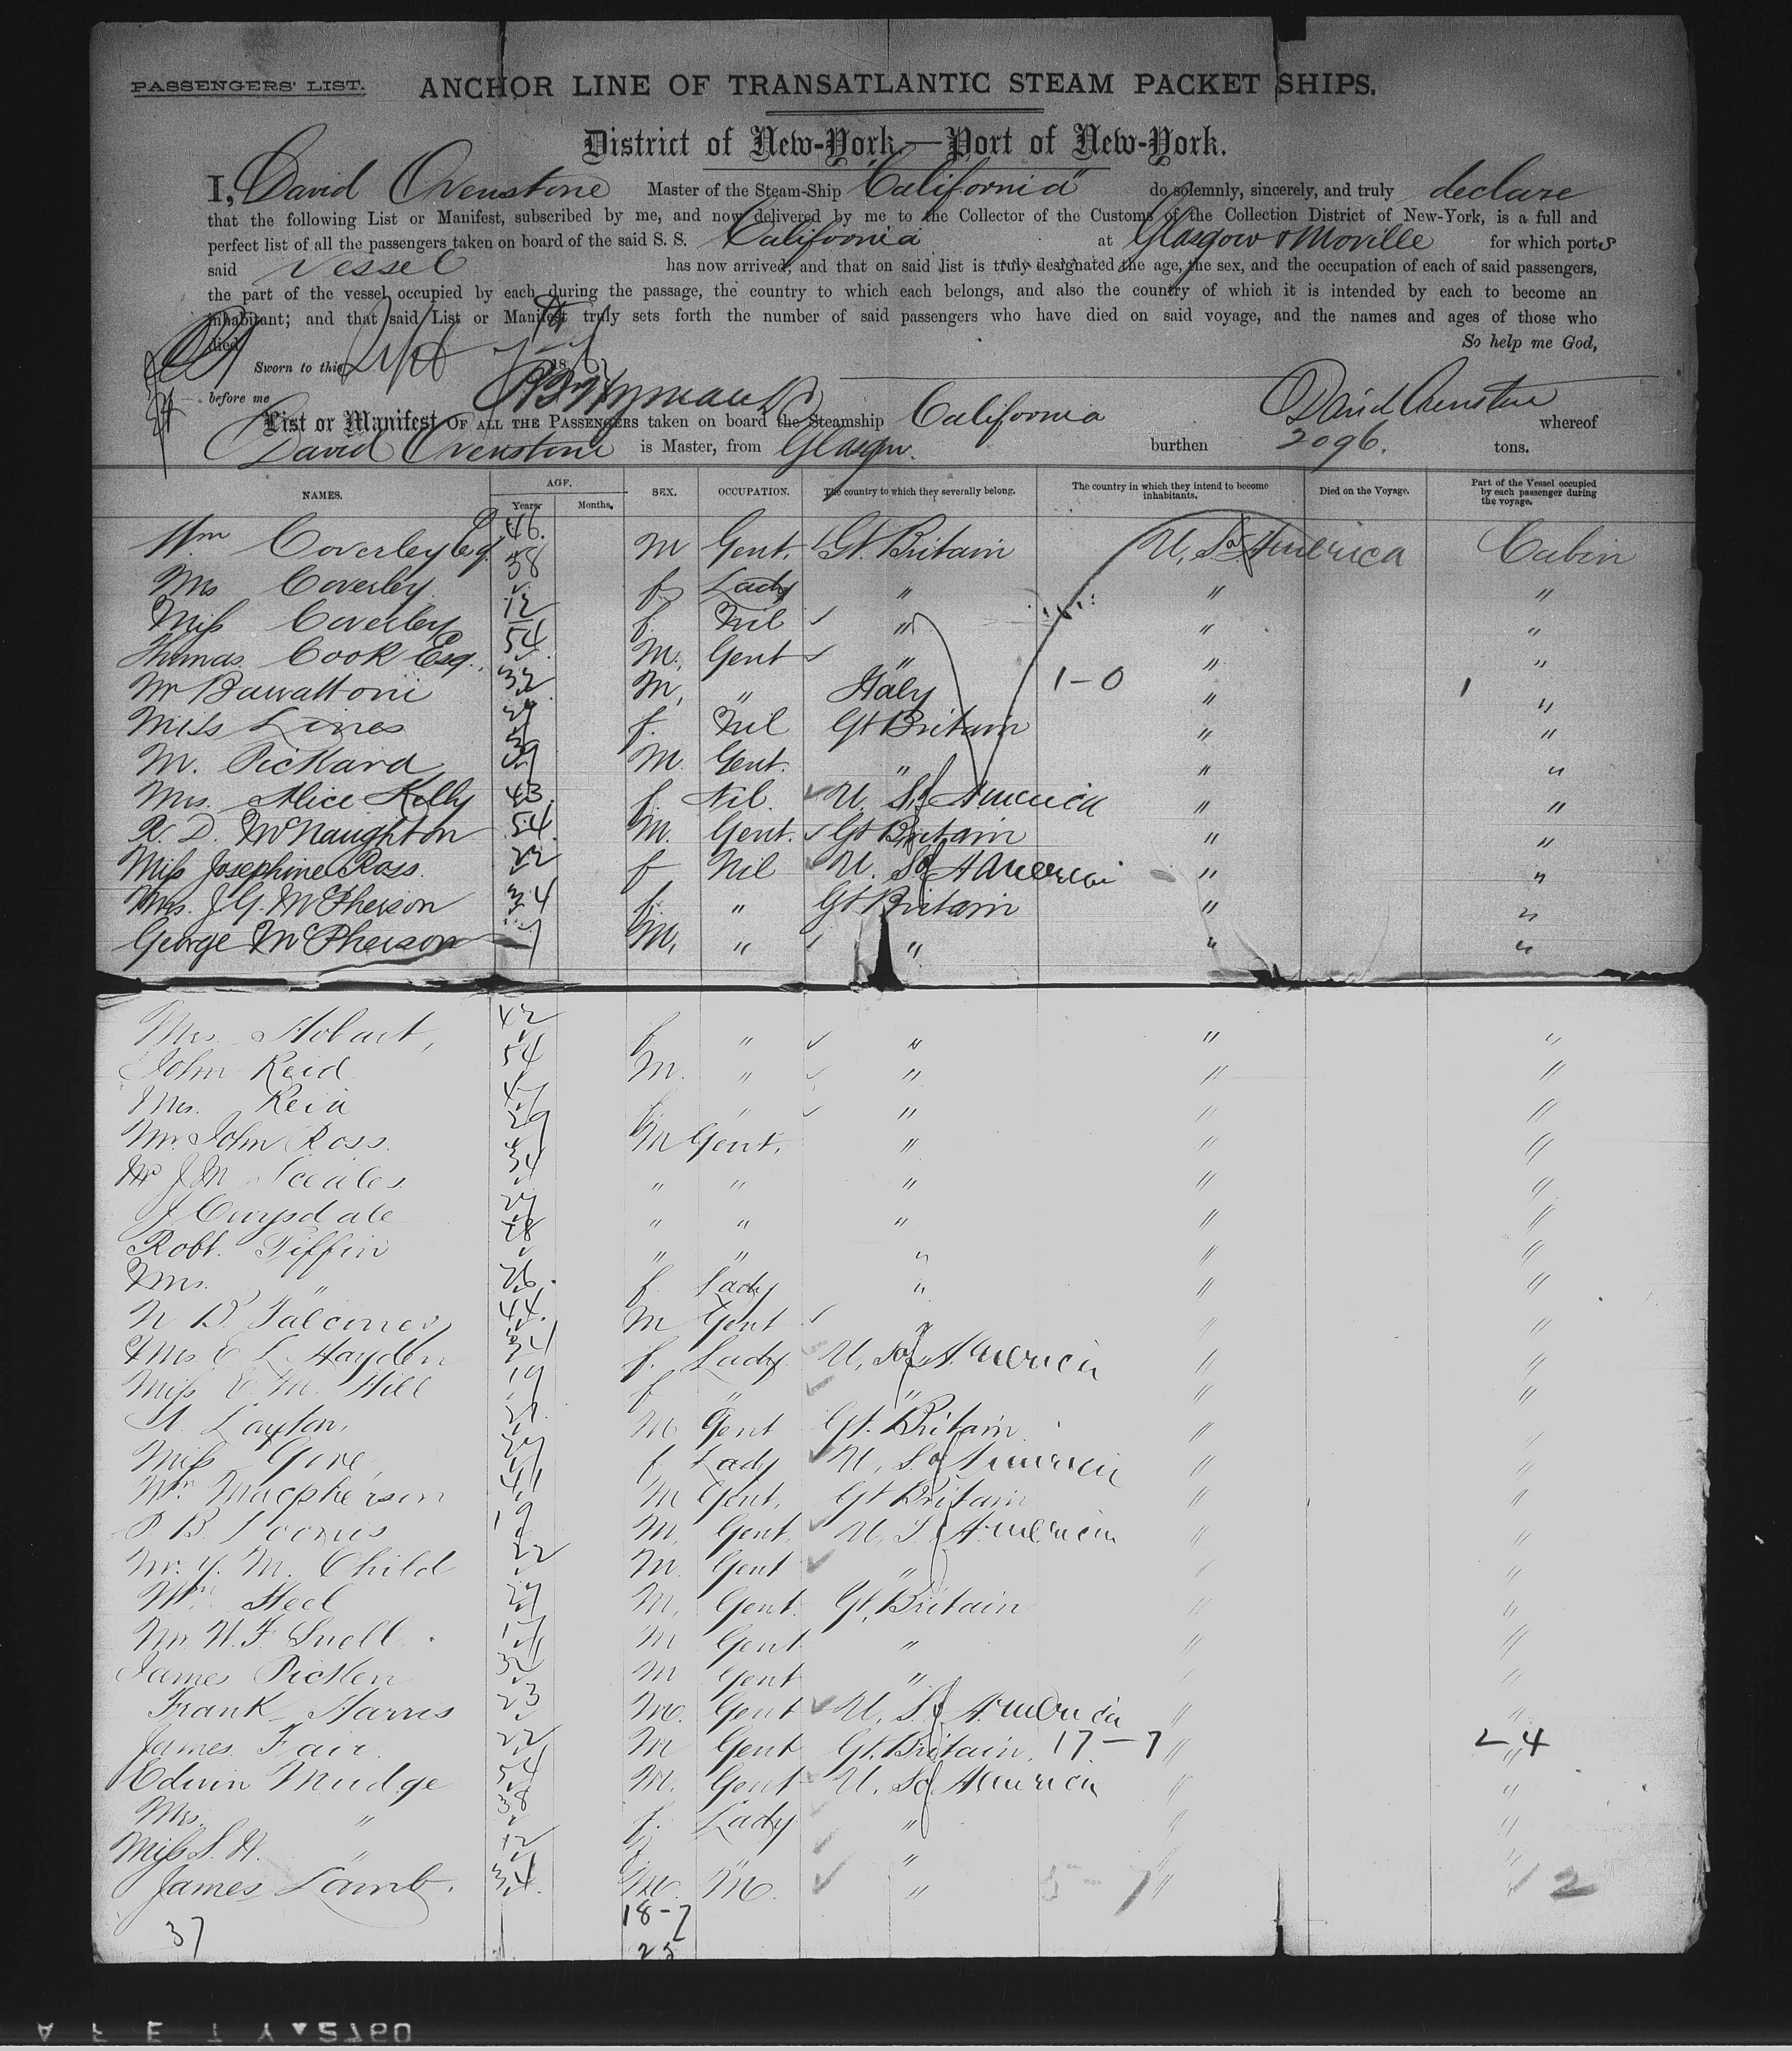 PASSENGERS' LIST. ANCHOR LINE OF TRANSATLANTIC STEAM PACKET SHIPS.
District of New-York.—Port of New-York.
I, David Ovenstone Master of the Steam-Ship "California" do solemnly, sincerely, and truly declare
that the following List or Manifest, subscribed by me, and now delivered by me to the Collector of the Customs of the Collection District of New-York, is a full and
perfect list of all the passengers taken on board of the said S. S. California at Glasgow & Moville for which ports
said Vessel has now arrived; and that on said list is truly designated the age, the sex, and the occupation of each of said passengers,
the part of the vessel occupied by each during the passage, the country to which each belongs, and also the country of which it is intended by each to become an
inhabitant; and that said List or Manifest truly sets forth the number of said passengers who have died on said voyage, and the names and ages of those who
died. So help me God,
Sworn to this Sept 18
before me David Ovenstone
List or Manifest OF ALL THE PASSENGERS taken on board the Steamship California whereof
David Ovenstone is Master, from Glasgow. burthen 2096. tons.
NAMES. AGE. Years Months. SEX. OCCUPATION. The country to which they severally belong. The country in which they intend to become inhabitants. Died on the Voyage. Part of the Vessel occupied by each passenger during the voyage.
Wm Coverley Esq 46. M Gent. Gt. Britain U, S of America Cabin
Mrs Coverley 38 f. Lady " " "
Miss Coverley 12 f. Nil " " "
Thomas Cook Esq. 54 M. Gent " " "
Mr 32 M, " Italy 1-0 " 1 "
Miss Lines f. Nil Gt Britain " "
M. Pickard 39 M. Gent. " " "
Mrs. Alice Kelly 43. f. Nil. U. S. of America " "
R. D. McNaughton 54. M. Gent. Gt Britain " "
Miss Josephine Ross. 22 f Nil U. S of America " "
Mrs. J. G. McPherson 34 f. " Gt Britain " "
George McPherson 7 M, " " " "
Mrs. Hobart, 42 f " " " "
John Reid 54 M. " " " "
Mrs. Reid f. " " " "
Mr. John Ross. 29 M Gent. " " "
Mr J M 34 " " " " "
J " " " " "
Robt. Tiffin 28 " " " " "
Mrs. " 26. f. Lady " " "
N B Falconer 44. M Gent " " "
Mrs E L Hayden 34 f. Lady U, S of America " "
Miss E M. Hill 19 f " " " "
Layton, M Gent Gt. Britain " "
Miss Gore, f. Lady U, S. of America " "
Wm. Macpherson M Gent. Gt Britain " "
P B. Loomis 19 M, Gent. U. S of America " "
Mr. Y. M. Child 22 M. Gent " " "
Wm. Steel M, Gent. Gt, Britain " "
Mr. W. F. Snell. M Gent " " "
James Picken M Gent " " "
Frank Harris 23 M. Gent U. S. of America " "
James Fair. 22 M Gent Gt. Britain. 17-7 " 2 4 "
Edwin Mudge 54 M. Gent U. S of America " "
Mrs. " 38 f. Lady " " "
Miss S. H. " 12 f. " " " "
James Lamb. 34. M. M. " 5-7 " 2
37 18-7
25